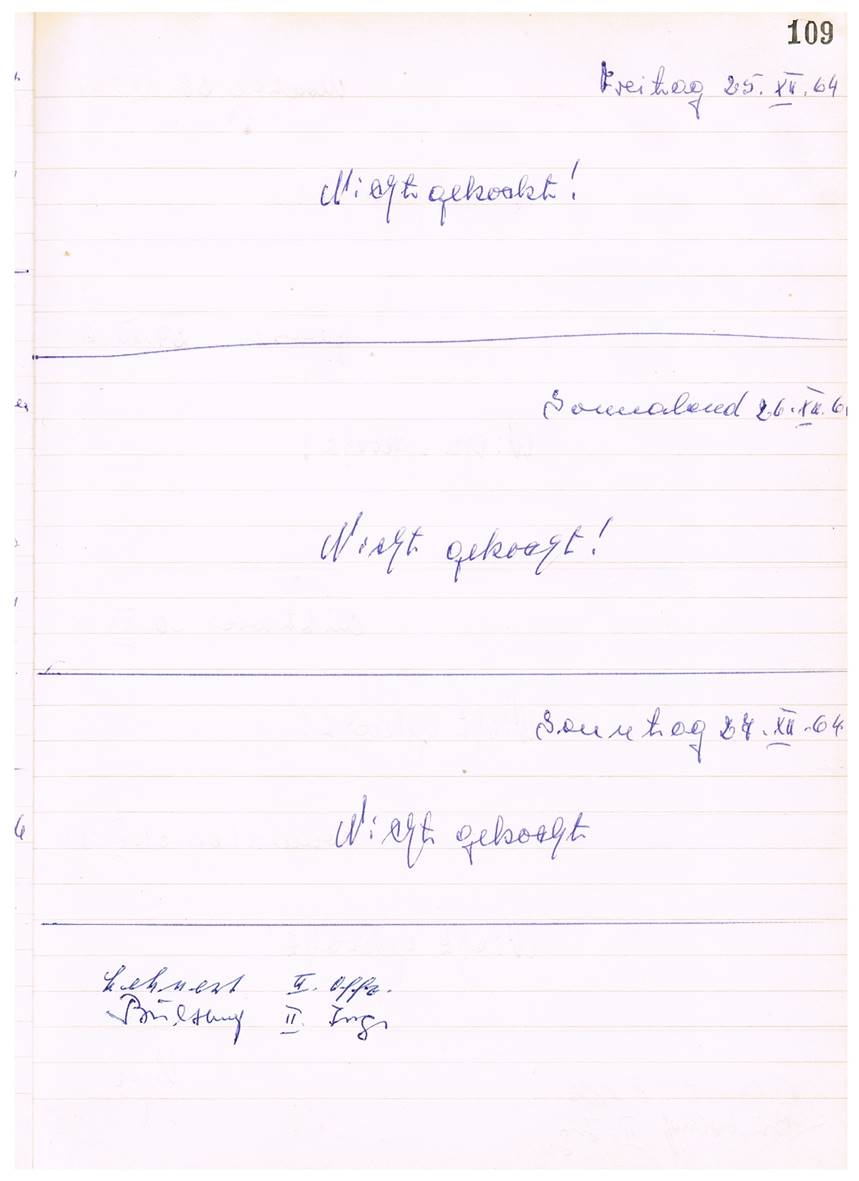 109
Freitag 25. XII. 64
Nicht gekocht!
Sonnabend 26. XII. 6
Nicht gekocht!
Sonntag 27. XII. 64
Nicht gekocht
Lehnert II. Offz.
II. Ing.